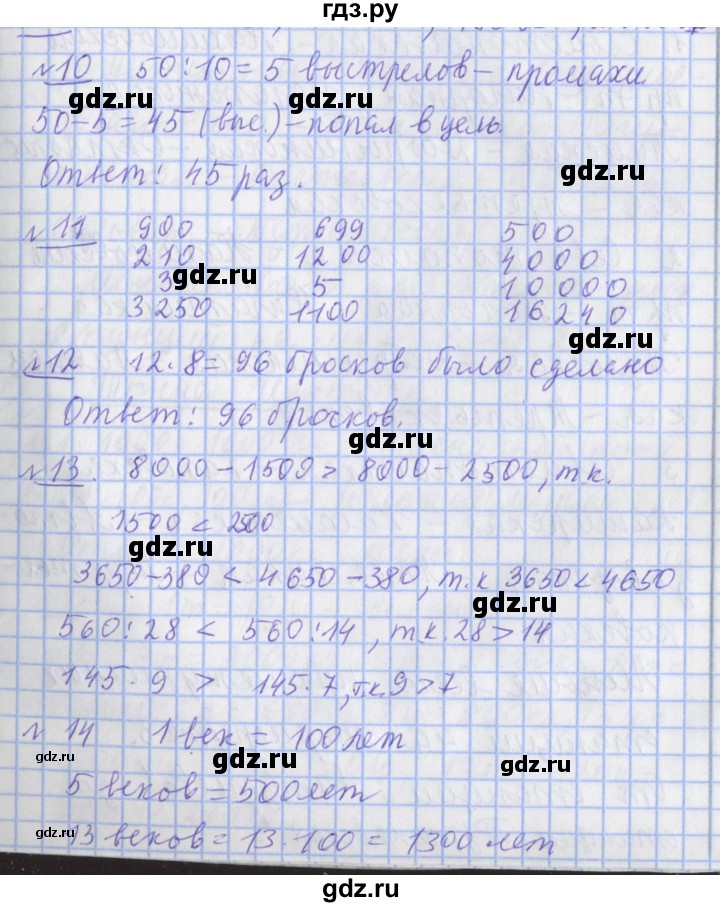 гдз.ру
№10 50:10=5 выстрелов – промахи
gdz.ru gdz.ru
50-5=45 (выс.) – попал в цель.
Ответ: 45 раз.
gdz.ru
№11 900 699 500
210 1200 4000
3 5 10000
gdz.ru
3250 1100 16240
gdz.ru
№12 12·8=96 бросков было сделано
Ответ: 96 бросков.
gdz.ru
№13. 8000-1500 > 8000-2500, т.к.
gdz.ru
1500 < 2500
gdz.ru
3650-380 < 4650-380, т.к 3650<4650
gdz.ru
560:28 < 560:14, т.к. 28>14
145·9 > 145·7, т.к. 9>7
№ 14 1 век = 100 лет
gdz.ru gdz.ru gdz.ru
5 веков = 500 лет
gdz.ru gdz.ru
13 веков = 13·100 = 1300 лет
gdz.ru